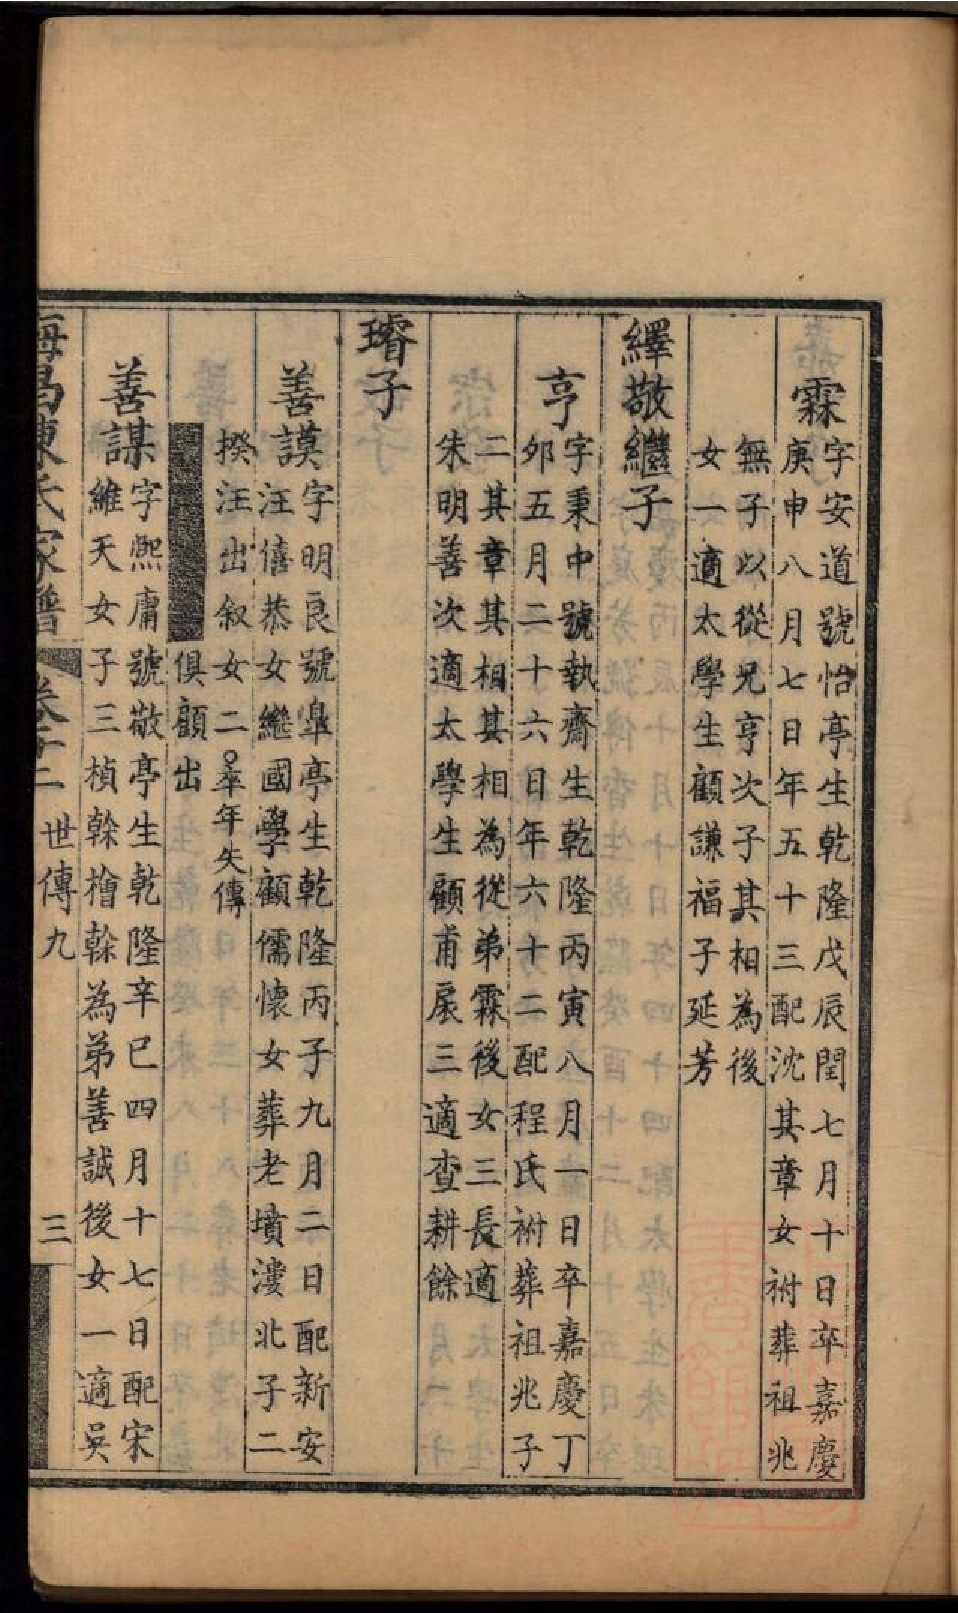 霖
字安道號怡亭生乾隆戊辰閏七月十日卒嘉慶
庚申八月七日年五十三配沈其章女祔葬祖兆
無子以從兄亨次子其相為後
女一適太學生顧謙福子延芳
繹敬繼子
亨
字秉中號執齋生乾隆丙寅八月一日卒嘉慶丁
卯五月二十六日年六十二配程氏祔葬祖兆子
二其章其相其相為從弟霖後女三長適
朱明善次適太學生顧甫扆三適查耕餘
璿子
善謨
字明良號皐亭生乾隆丙子九月二日配新安
汪僖恭女繼國學顧儒懷女葬老墳漊北子二
揆汪出叙女二○卒年失傳
俱顧出
善謀
字熙庸號敬亭生乾隆辛巳四月十七日配宋
維天女子三楨榦擔榦為弟善誠後女一適吳
海昌陳氏家譜
卷十二
世傳九
三